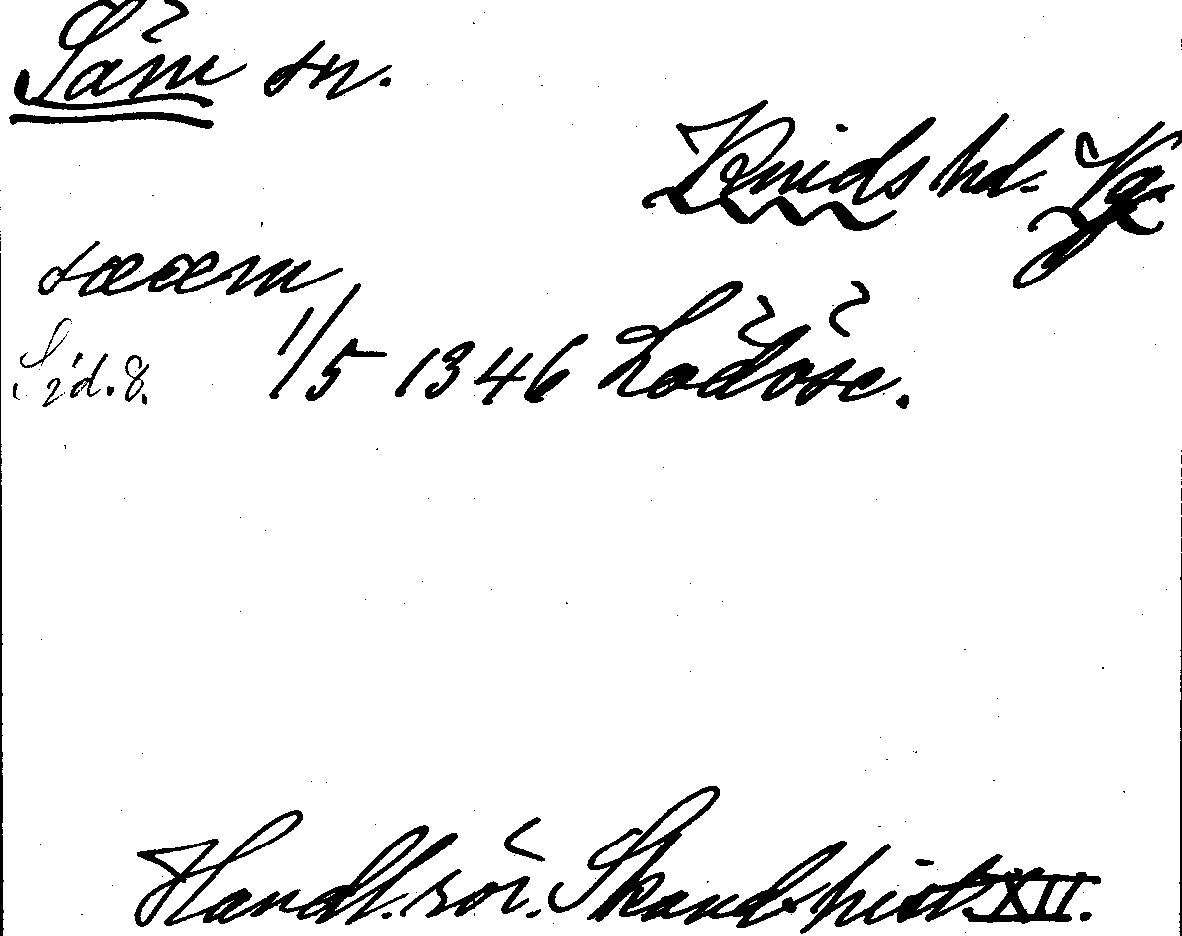 Säm sn.
Kinds hd. Vg.
sææm
Sid. 8. 1/5 1346 Lödöse.
Handl. rör. Skand. hist. XII.